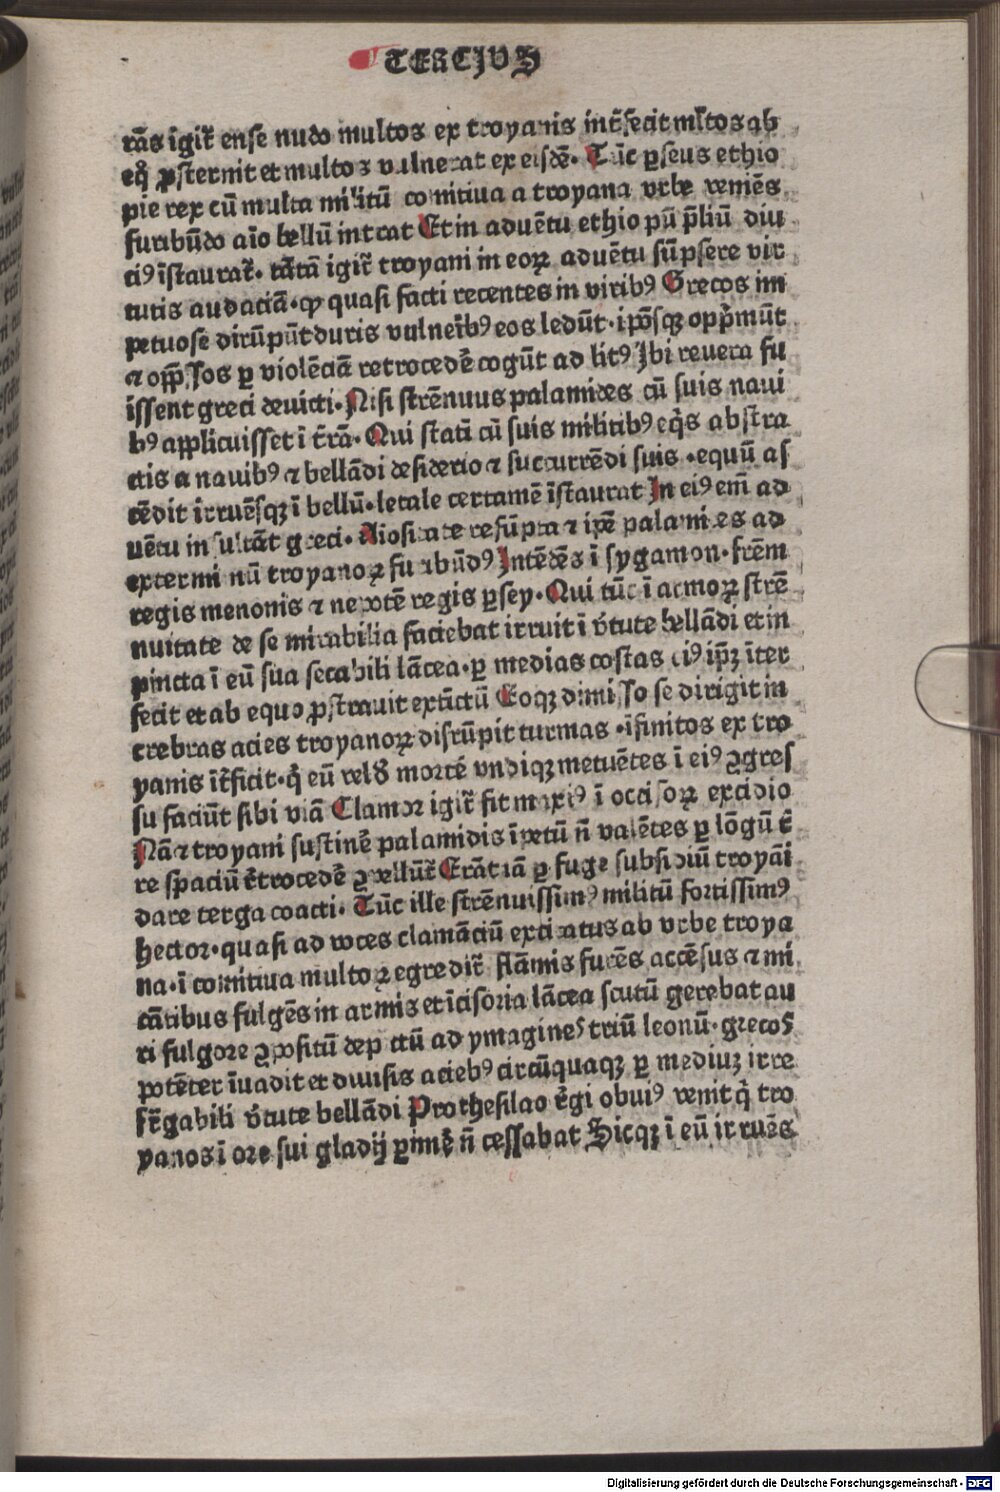 TERCIVS
rãs igit̃ ense nudo multos ex troyanis int̃fecit ml̃tos ab
eq̊ ꝓsternit et multos vulnerat ex eisdẽ. Tũc ꝑseus ethio
pie rex cũ multa militũ comitiua a troyana vrbe veniẽs
furibũdo aĩo bellũ intrat Et in aduẽtu ethiopũ p̃liũ diu
ciꝰ ĩstaurat̃. tãtã igit̃ troyani in eoꝝ aduẽtu sũpsere vir
tutis audaciã. ꝙ quasi facti recentes in viribꝰ Grecos im
petuose dirũpũt duris vulneribꝰ eos ledũt. ipõsqꝫ opp̃mũt
⁊ opp̃ssos ꝑ violẽciã retrocedẽ cogũt ad litꝰ Ibi reuera fu
issent greci deuicti. Nisi strẽnuus palamides cũ suis naui
bꝰ applicuisset ĩ t̃rã. Qui statĩ cũ suis militibꝰ eq̃s abstra
ctis a nauibꝰ ⁊ bellãdi desiderio ⁊ succurrẽdi suis. equũ as
cẽdit irruẽsqꝫ ĩ bellũ. letale certamẽ ĩstaurat In eiꝰ em̃ ad
uẽtu insultãt greci. Aiositate resũpta ⁊ ip̃e palamides ad
exterminũ troyanoꝝ furibũdꝰ Intẽdẽs ĩ sygamon. frẽm
regis menonis ⁊ nepotẽ regis ꝑsey. Qui tũc ĩ armoꝝ strẽ
nuitate de se mirabilia faciebat irruit ĩ v̓tute bellãdi et in
pincta ĩ eũ sua secabili lãcea. ꝑ medias costas eiꝰ ip̃ꝫ ĩter
fecit et ab equo ꝓstrauit extĩctũ Eoqꝫ dimisso se dirigit in
crebras acies troyanoꝝ disrũpit turmas. ĩfinitos ex tro
yanis ĩt̃ficit. q̇ eũ velud morté vndiqꝫ metuẽtes ĩ eiꝰ ꝯgres
su faciũt sibi viã Clamor igit̃ fit maxiꝰ ĩ occisoꝝ excidio
Nã ⁊ troyani sustinẽ palamidis ĩpetũ ñ valẽtes ꝑ lõgũ t̃
re spaciũ r̃trocedẽ ꝯpellũt̃ Erãt iã ꝑ fuge subsidiũ troyãi
dare terga coacti. Tũc ille strẽnuissimꝰ militũ fortissimꝰ
hector. quasi ad voces clamãciũ excitatus ab vrbe troya
na. ĩ comitiua multoꝝ egredit̃ flãmis furẽs accẽsus ⁊ mi
cãtibus fulgẽs in armis et ĩcisoria lãcea scutũ gerebat au
ri fulgore ꝯpositũ depictũ ad ymagines triũ leonũ. grecos
potẽter ĩuadit et diuisis aciebꝰ circũquaqꝫ ꝑ mediuꝫ irre
fr̃gabili v̓tute bellãdi Prothesilao r̃gi obuiꝰ venit q̇ tro
yanos ĩ ore sui gladij ꝑimẽ ñ cessabat Sicqꝫ ĩ eũ irruẽs
Digitalisierung gefördert durch die Deutsche Forschungsgemeinschaft - DFG